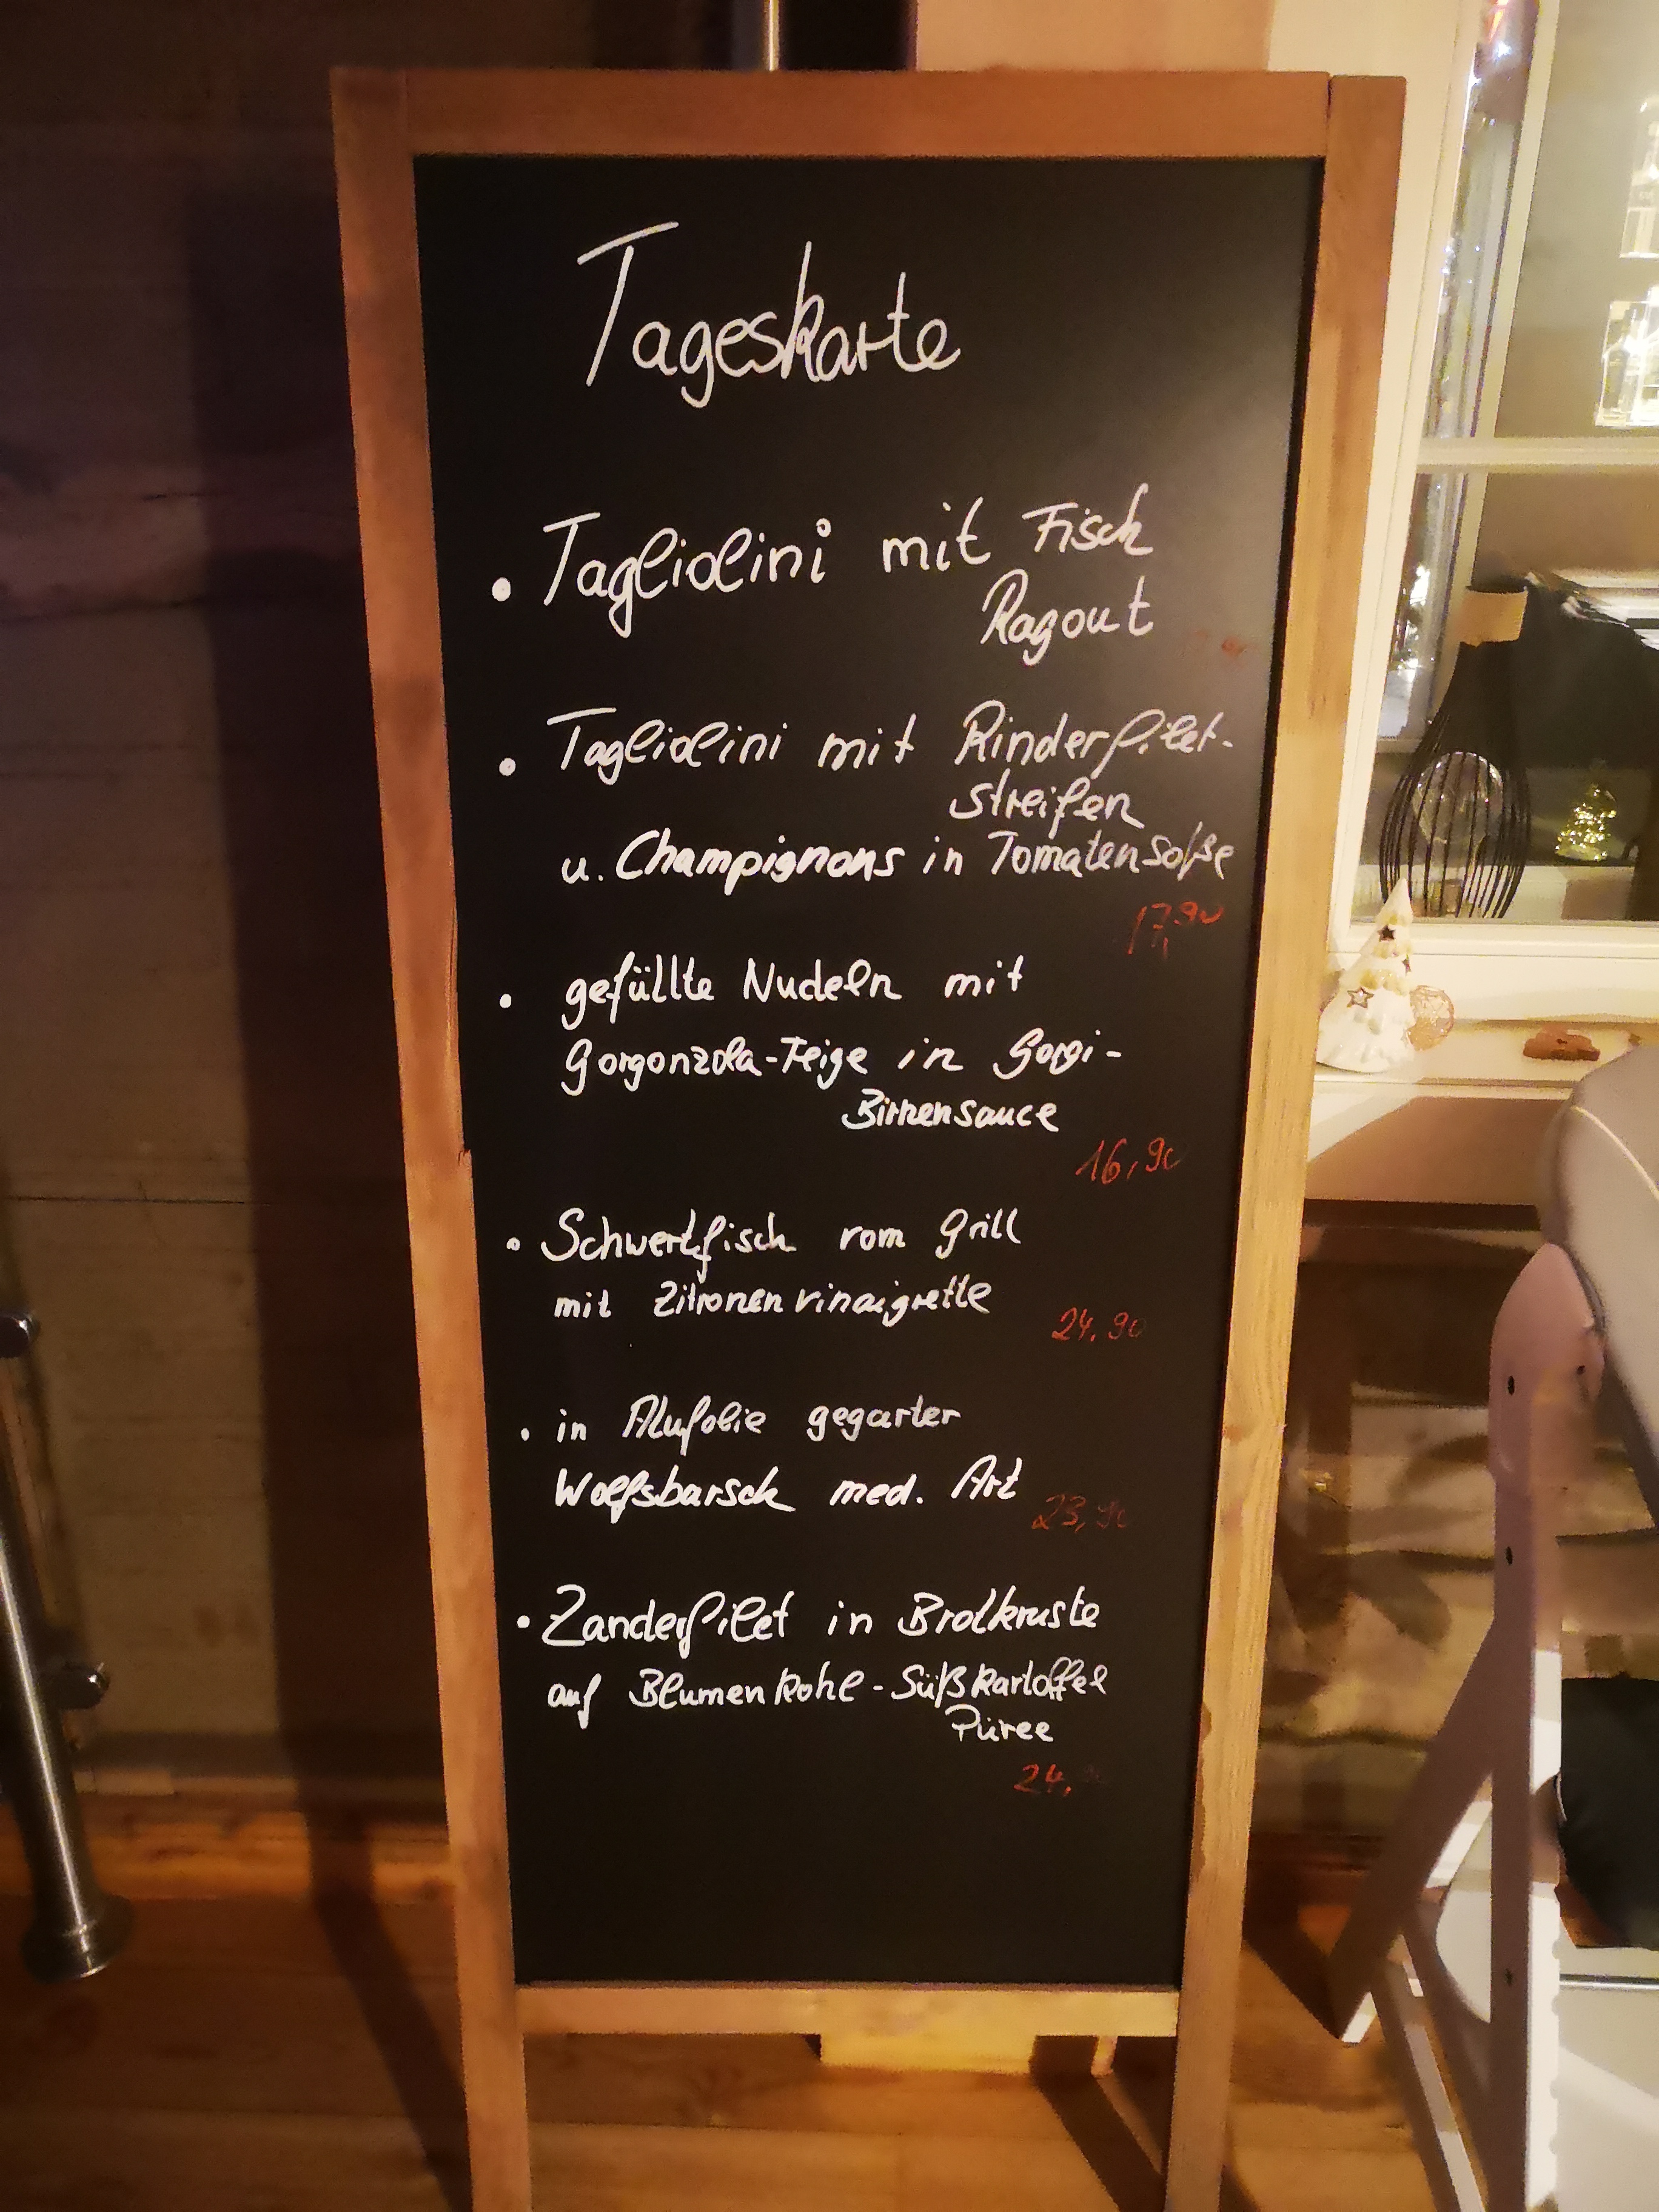 Tageskarte
• Tagliolini mit Fisch
Ragout
• Tagliolini mit Rinderfilet-
streifen
u. Champignons in Tomatensoße
17,90
• gefüllte Nudeln mit
Gorgonzola-Feige in Gorgi-
Birnensauce
16,90
• Schwertfisch vom Grill
mit Zitronenvinaigrette
24,90
• in Alufolie gegarter
Wolfsbarsch med. Art
23,90
• Zanderfilet in Brotkruste
auf Blumenkohl-Süßkartoffel
Püree
24,